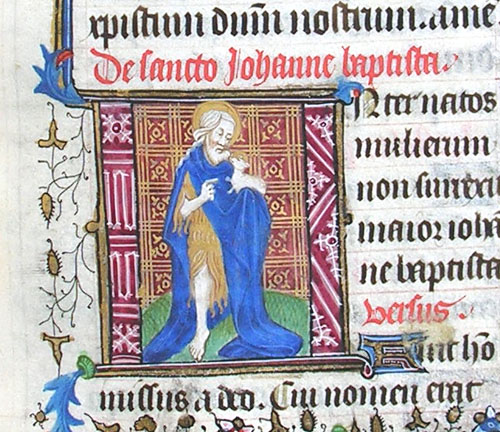 xpistum dum̅ nostrum. ame̅
De sancto Johanne baptista.
Inter natos
mulierum
non surrexi
maior ioha
ne baptista
versus.
Fuit ho̅
missus a deo. Cui nomen erat